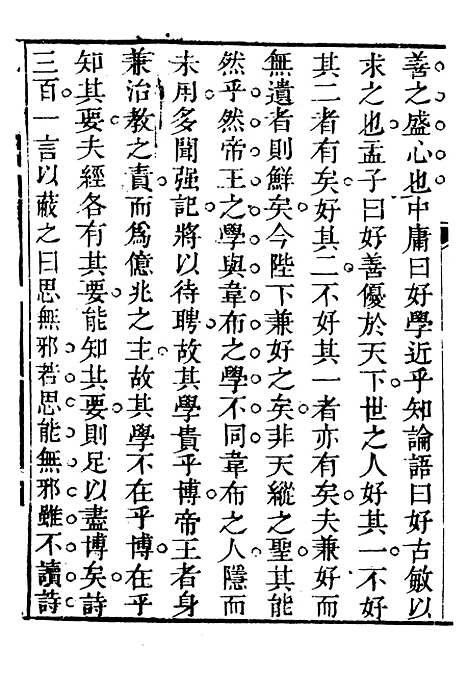 善之盛心也中庸曰好學近乎知論語曰好古敏以
求之也孟子曰好善優於天下世之人好其一不好
其二者有矣好其二不好其一者亦有矣夫兼好而
無遺者則鮮矣今陛下兼好之矣非天縱之聖其能
然乎然帝王之學與韋布之學不同韋布之人隱而
未用多聞强記將以待聘故其學貴乎博帝王者身
兼治教之責而爲億兆之主故其學不在乎博在乎
知其要夫經各有其要能知其要則足以盡博矣詩
三百一言以蔽之曰思無邪若思能無邪雖不讀詩